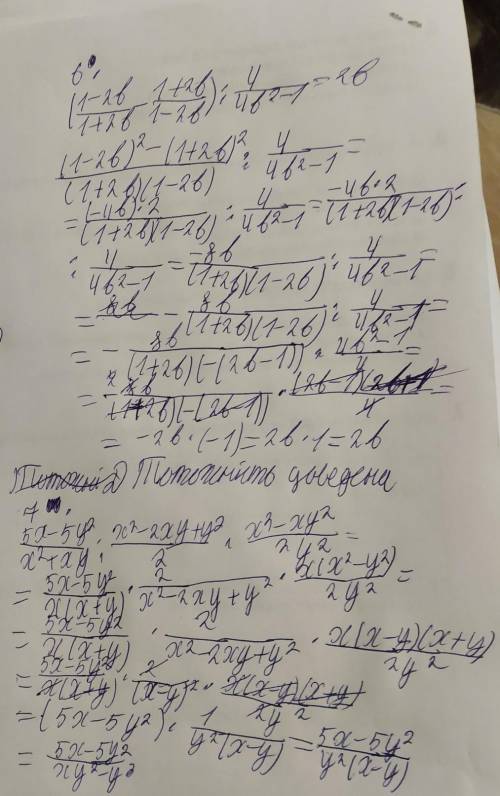 6.
(1-2в/1+2в - 1+2в/1-2в) : 4/4в²-1 = 2в
(1-2в)² - (1+2в)²/(1+2в)(1-2в) : 4/4в²-1 =
= (-4в)·2/(1+2в)(1-2в) : 4/4в²-1 = -4в·2/(1+2в)(1-2в) :
: 4/4в²-1 = -8в/(1+2в)(1-2в) : 4/4в²-1 =
= - 8в/(1+2в)(1-2в) : 4/4в²-1 =
= - 8в/(1+2в)(-(2в-1)) · 4в²-1/4 =
= 2 8в/(1+2в)(-(2в-1)) · (2в-1)(2в+1)/4 =
= -2в·(-1) = 2в·1 = 2в
Тотожність доведена
7.
5x-5y²/x²+xy : x²-2xy+y²/2 · x³-xy²/2y² =
= 5x-5y²/x(x+y) · 2/x²-2xy+y² · x(x²-y²)/2y² =
= 5x-5y²/x(x+y) · 2/x²-2xy+y² · x(x-y)(x+y)/2y²
= 5x-5y²/x(x+y) · 2/(x-y)² · x(x-y)(x+y)/2y²
= (5x-5y²) · 1/y²(x-y) = 5x-5y²/y²(x-y)
= 5x-5y²/xy²-y³